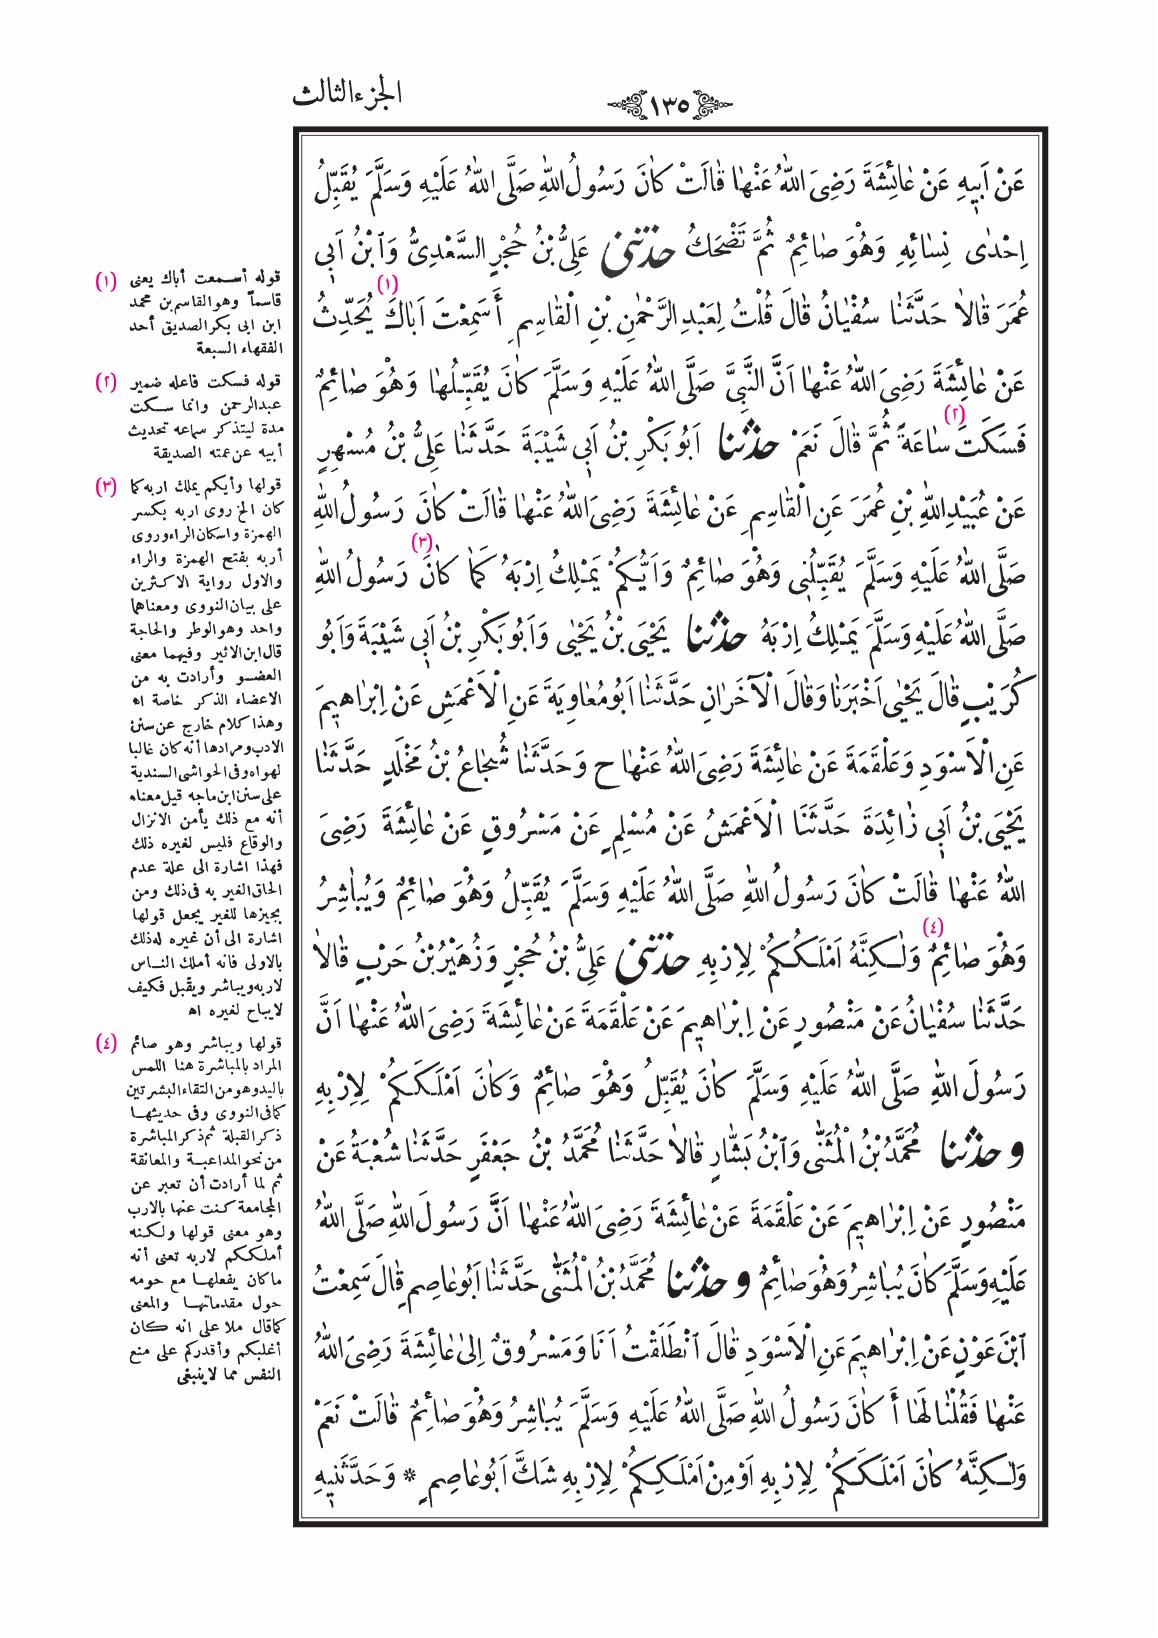 الجزء الثالث
١٣٥
عَنْ اَبيهِ عَنْ عٰائِشَةَ رَضِىَ اللّٰهُ عَنْهٰا قٰالَتْ كٰانَ رَسُولُ اللّٰهِ صَلَّى اللّٰهُ عَلَيْهِ وَسَلَّمَ يُقَبِّلُ
اِحْدٰى نِسٰائِهِ وَهُوَ صٰائِمٌ ثُمَّ تَضْحَكُ حدثنى عَلِىُّ بْنُ حُجْرٍ السَّعْدِىُّ وَابْنُ اَبى
عُمَرَ قٰالاٰ حَدَّثَنٰا سُفْيٰانُ قٰالَ قُلْتُ لِعَبْدِ الرَّحْمٰنِ بْنِ الْقٰاسِمِ أَسَمِعْتَ اَبٰاكَ (١) يُحَدِّثُ
عَنْ عٰائِشَةَ رَضِىَ اللّٰهُ عَنْهٰا اَنَّ النَّبِىَّ صَلَّى اللّٰهُ عَلَيْهِ وَسَلَّمَ كٰانَ يُقَبِّلُهٰا وَهُوَ صٰائِمٌ
فَسَكَتَ (٢) سٰاعَةً ثُمَّ قٰالَ نَعَمْ حدثنا اَبُو بَكْرِ بْنُ اَبى شَيْبَةَ حَدَّثَنٰا عَلِىُّ بْنُ مُسْهِرٍ
عَنْ عُبَيْدِ اللّٰهِ بْنِ عُمَرَ عَنِ الْقٰاسِمِ عَنْ عٰائِشَةَ رَضِىَ اللّٰهُ عَنْهٰا قٰالَتْ كٰانَ رَسُولُ اللّٰهِ
صَلَّى اللّٰهُ عَلَيْهِ وَسَلَّمَ يُقَبِّلُنى وَهُوَ صٰائِمٌ وَاَيُّكُمْ يَمْلِكُ اِرْبَهُ كَمٰا كٰانَ (٣) رَسُولُ اللّٰهِ
صَلَّى اللّٰهُ عَلَيْهِ وَسَلَّمَ يَمْلِكُ اِرْبَهُ حدثنا يَحْيَى بْنُ يَحْيٰى وَاَبُو بَكْرِ بْنُ اَبى شَيْبَةَ وَاَبُو
كُرَيْبٍ قٰالَ يَحْيٰى اَخْبَرَنٰا وَقٰالَ الْآخَرٰانِ حَدَّثَنٰا اَبُو مُعٰاوِيَةَ عَنِ الْاَعْمَشِ عَنْ اِبْرٰاهيمَ
عَنِ الْاَسْوَدِ وَعَلْقَمَةَ عَنْ عٰائِشَةَ رَضِىَ اللّٰهُ عَنْهٰا ح وَحَدَّثَنٰا شُجٰاعُ بْنُ مَخْلَدٍ حَدَّثَنٰا
يَحْيَى بْنُ اَبى زٰائِدَةَ حَدَّثَنَا الْاَعْمَشُ عَنْ مُسْلِمٍ عَنْ مَسْرُوقٍ عَنْ عٰائِشَةَ رَضِىَ
اللّٰهُ عَنْهٰا قٰالَتْ كٰانَ رَسُولُ اللّٰهِ صَلَّى اللّٰهُ عَلَيْهِ وَسَلَّمَ يُقَبِّلُ وَهُوَ صٰائِمٌ وَيُبٰاشِرُ
وَهُوَ صٰائِمٌ (٤) وَلٰكِنَّهُ اَمْلَكُكُمْ لِاِرْبِهِ حدثنى عَلِىُّ بْنُ حُجْرٍ وَزُهَيْرُ بْنُ حَرْبٍ قٰالاٰ
حَدَّثَنٰا سُفْيٰانُ عَنْ مَنْصُورٍ عَنْ اِبْرٰاهيمَ عَنْ عَلْقَمَةَ عَنْ عٰائِشَةَ رَضِىَ اللّٰهُ عَنْهٰا اَنَّ
رَسُولَ اللّٰهِ صَلَّى اللّٰهُ عَلَيْهِ وَسَلَّمَ كٰانَ يُقَبِّلُ وَهُوَ صٰائِمٌ وَكٰانَ اَمْلَكَكُمْ لِاِرْبِهِ
و حدثنا مُحَمَّدُ بْنُ الْمُثَنّٰى وَابْنُ بَشّٰارٍ قٰالاٰ حَدَّثَنٰا مُحَمَّدُ بْنُ جَعْفَرٍ حَدَّثَنٰا شُعْبَةُ عَنْ
مَنْصُورٍ عَنْ اِبْرٰاهيمَ عَنْ عَلْقَمَةَ عَنْ عٰائِشَةَ رَضِىَ اللّٰهُ عَنْهٰا اَنَّ رَسُولَ اللّٰهِ صَلَّى اللّٰهُ
عَلَيْهِ وَسَلَّمَ كٰانَ يُبٰاشِرُ وَهُوَ صٰائِمٌ و حدثنا مُحَمَّدُ بْنُ الْمُثَنّٰى حَدَّثَنٰا اَبُو عٰاصِمٍ قٰالَ سَمِعْتُ
ابْنَ عَوْنٍ عَنْ اِبْرٰاهيمَ عَنِ الْاَسْوَدِ قٰالَ انْطَلَقْتُ اَنَا وَمَسْرُوقٌ اِلىٰ عٰائِشَةَ رَضِىَ اللّٰهُ
عَنْهٰا فَقُلْنٰا لَهٰا أَ كٰانَ رَسُولُ اللّٰهِ صَلَّى اللّٰهُ عَلَيْهِ وَسَلَّمَ يُبٰاشِرُ وَهُوَ صٰائِمٌ قٰالَتْ نَعَمْ
وَلٰكِنَّهُ كٰانَ اَمْلَكَكُمْ لِاِرْبِهِ اَوْ مِنْ اَمْلَكِكُمْ لِاِرْبِهِ شَكَّ اَبُو عٰاصِمٍ * وَحَدَّثَنيهِ
(١) قوله أسمعت أباك يعنى
قاسماً وهو القاسم بن محمد
ابن ابى بكر الصديق أحد
الفقهاء السبعة
(٢) قوله فسكت فاعله ضمير
عبدالرحمن وانما سكت
مدة ليتذكر سماعه تحديث
أبيه عن عمته الصديقة
(٣) قولها وأيكم يملك اربه كما
كان الخ روى اربه بكسر
الهمزة واسكان الراء وروى
أربه بفتح الهمزة والراء
والاول رواية الاكثرين
على بيان النووى ومعناهما
واحد وهو الوطر والحاجة
قال ابن الاثير وفيهما معنى
العضو وأرادت به من
الاعضاء الذكر خاصة اه
وهذا كلام خارج عن سنن
الادب ومرادها أنه كان غالبا
لهواه وفى الحواشى السندية
على سنن ابن ماجه قيل معناه
أنه مع ذلك يأمن الانزال
والوقاع فليس لغيره ذلك
فهذا اشارة الى علة عدم
الحاق الغير به فى ذلك ومن
يجيزها للغير يجعل قولها
اشارة الى أن غيره له ذلك
بالاولى فانه أملك الناس
لاربه ويباشر ويقبل فكيف
لايباح لغيره اه
(٤) قولها ويباشر وهو صائم
المراد بالمباشرة هنا اللمس
باليد وهو من التقاء البشرتين
كما فى النووى وفى حديثها
ذكر القبلة ثم ذكر المباشرة
من نحو المداعبة والمعانقة
ثم لما أرادت أن تعبر عن
المجامعة كنت عنها بالارب
وهو معنى قولها ولكنه
أملككم لاربه تعنى أنه
ما كان يفعلها مع حومه
حول مقدماتها والمعنى
كما قال ملا على انه كان
أغلبكم وأقدركم على منع
النفس مما لاينبغى